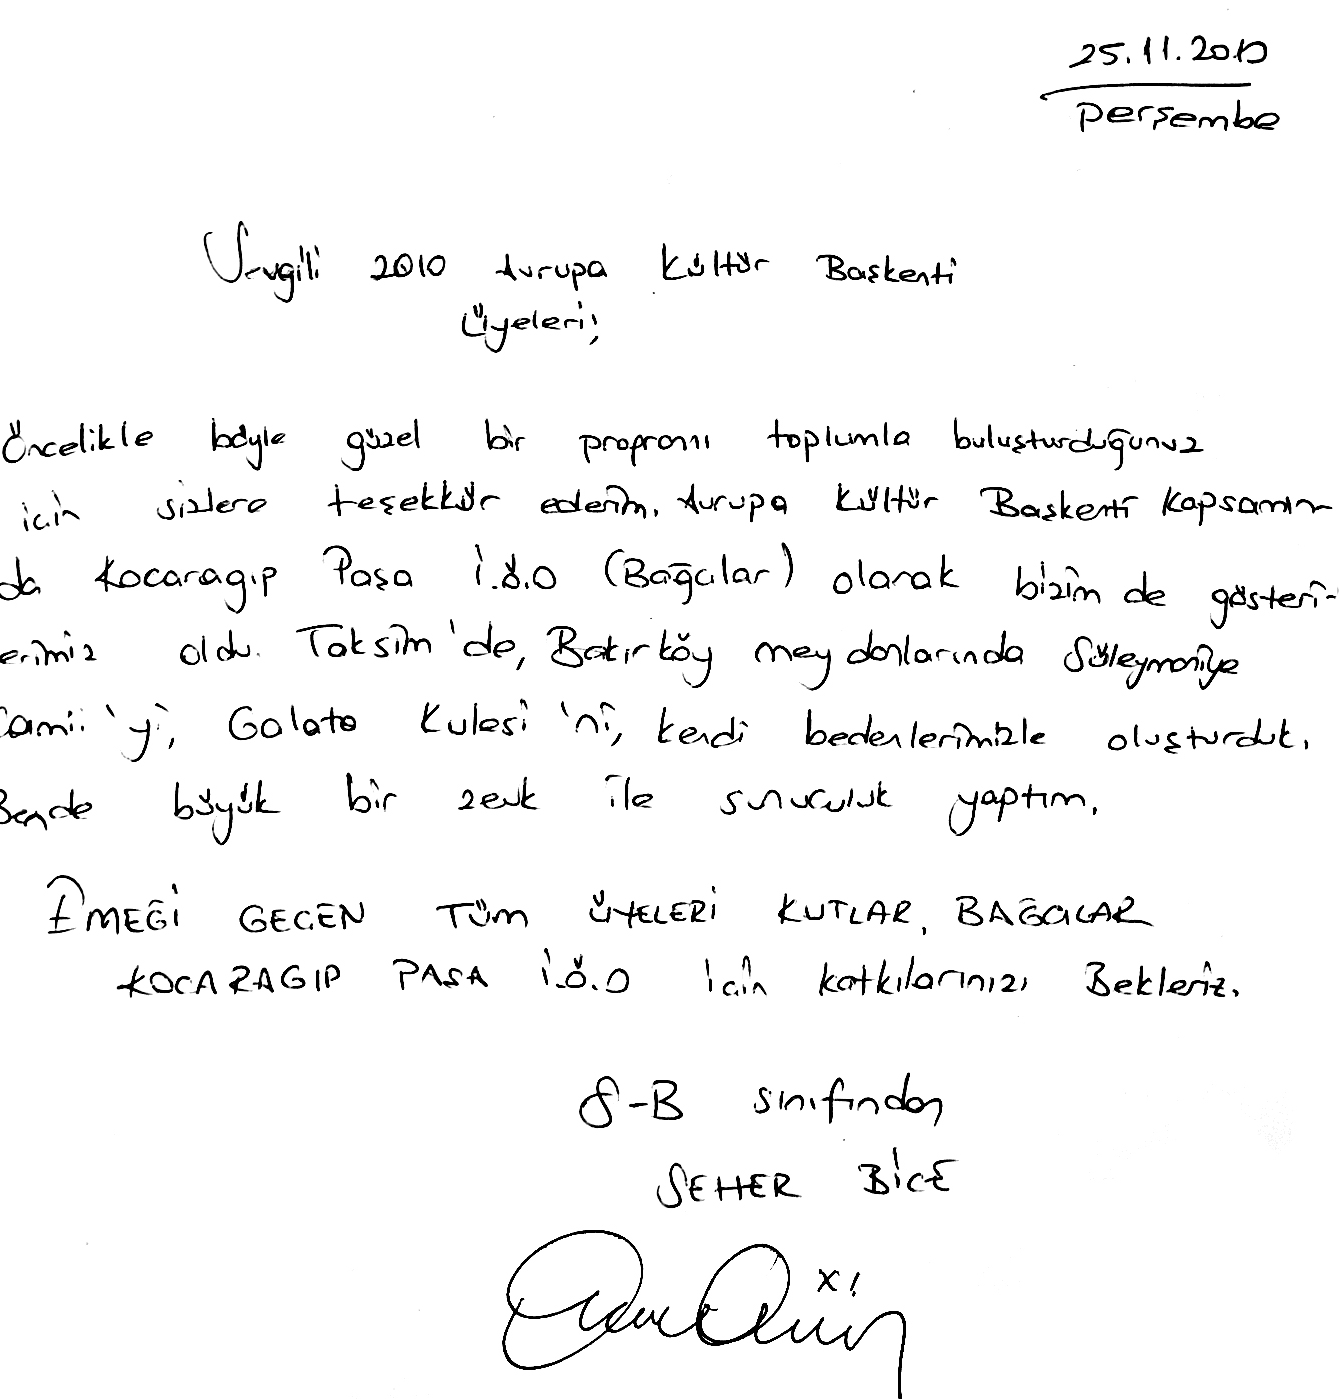 25.11.2010
Perşembe
Sevgili 2010 Avrupa Kültür Başkenti
Üyeleri;
Öncelikle böyle güzel bir programı toplumla buluşturduğunuz
için sizlere teşekkür ederim. Avrupa Kültür Başkenti Kapsamın-
da Kocaragıp Paşa İ.Ö.O (Bağcılar) olarak bizim de gösteri-
lerimiz oldu. Taksim'de, Bakırköy meydanlarında Süleymaniye
Camii'yi, Galata Kulesi'ni, kendi bedenlerimizle oluşturduk.
Bende büyük bir zevk ile sunuculuk yaptım.
EMEĞİ GEÇEN TÜM ÜYELERİ KUTLAR, BAĞCILAR
KOCARAGIP PAŞA İ.Ö.O için katkılarınızı Bekleriz.
8-B sınıfından
SEHER BİCE